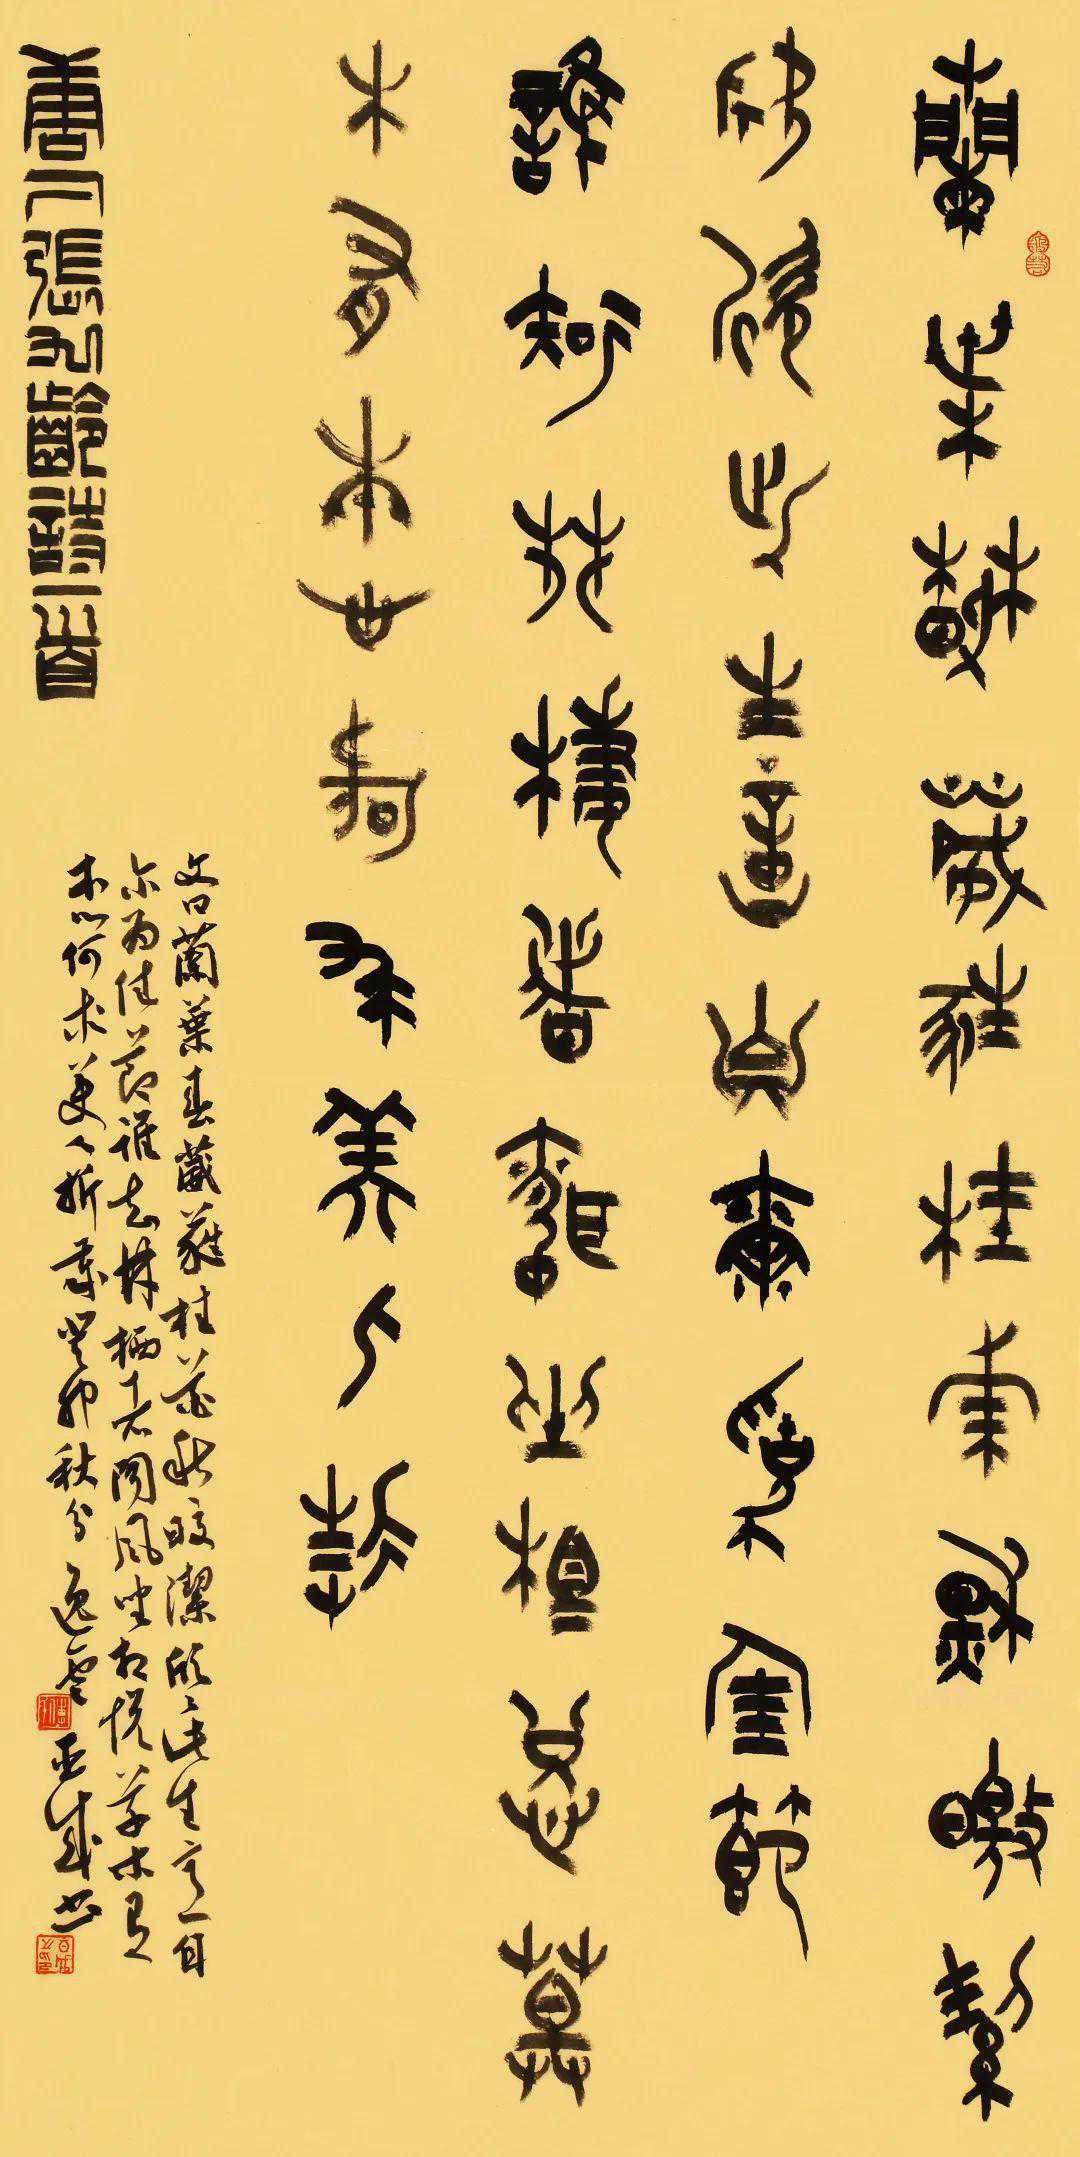 蘭葉春葳蕤桂華秋皦潔
欣欣此生意自爾為佳節
誰知林棲者聞風坐相悅草
木有本心何求美人折
唐人張九齡詩一首
文曰蘭葉春葳蕤桂華秋皎潔欣欣此生意自
尔為佳節誰知林栖者聞風坐相悅草木有
本心何求美人折癸卯秋分逸雲亞成书